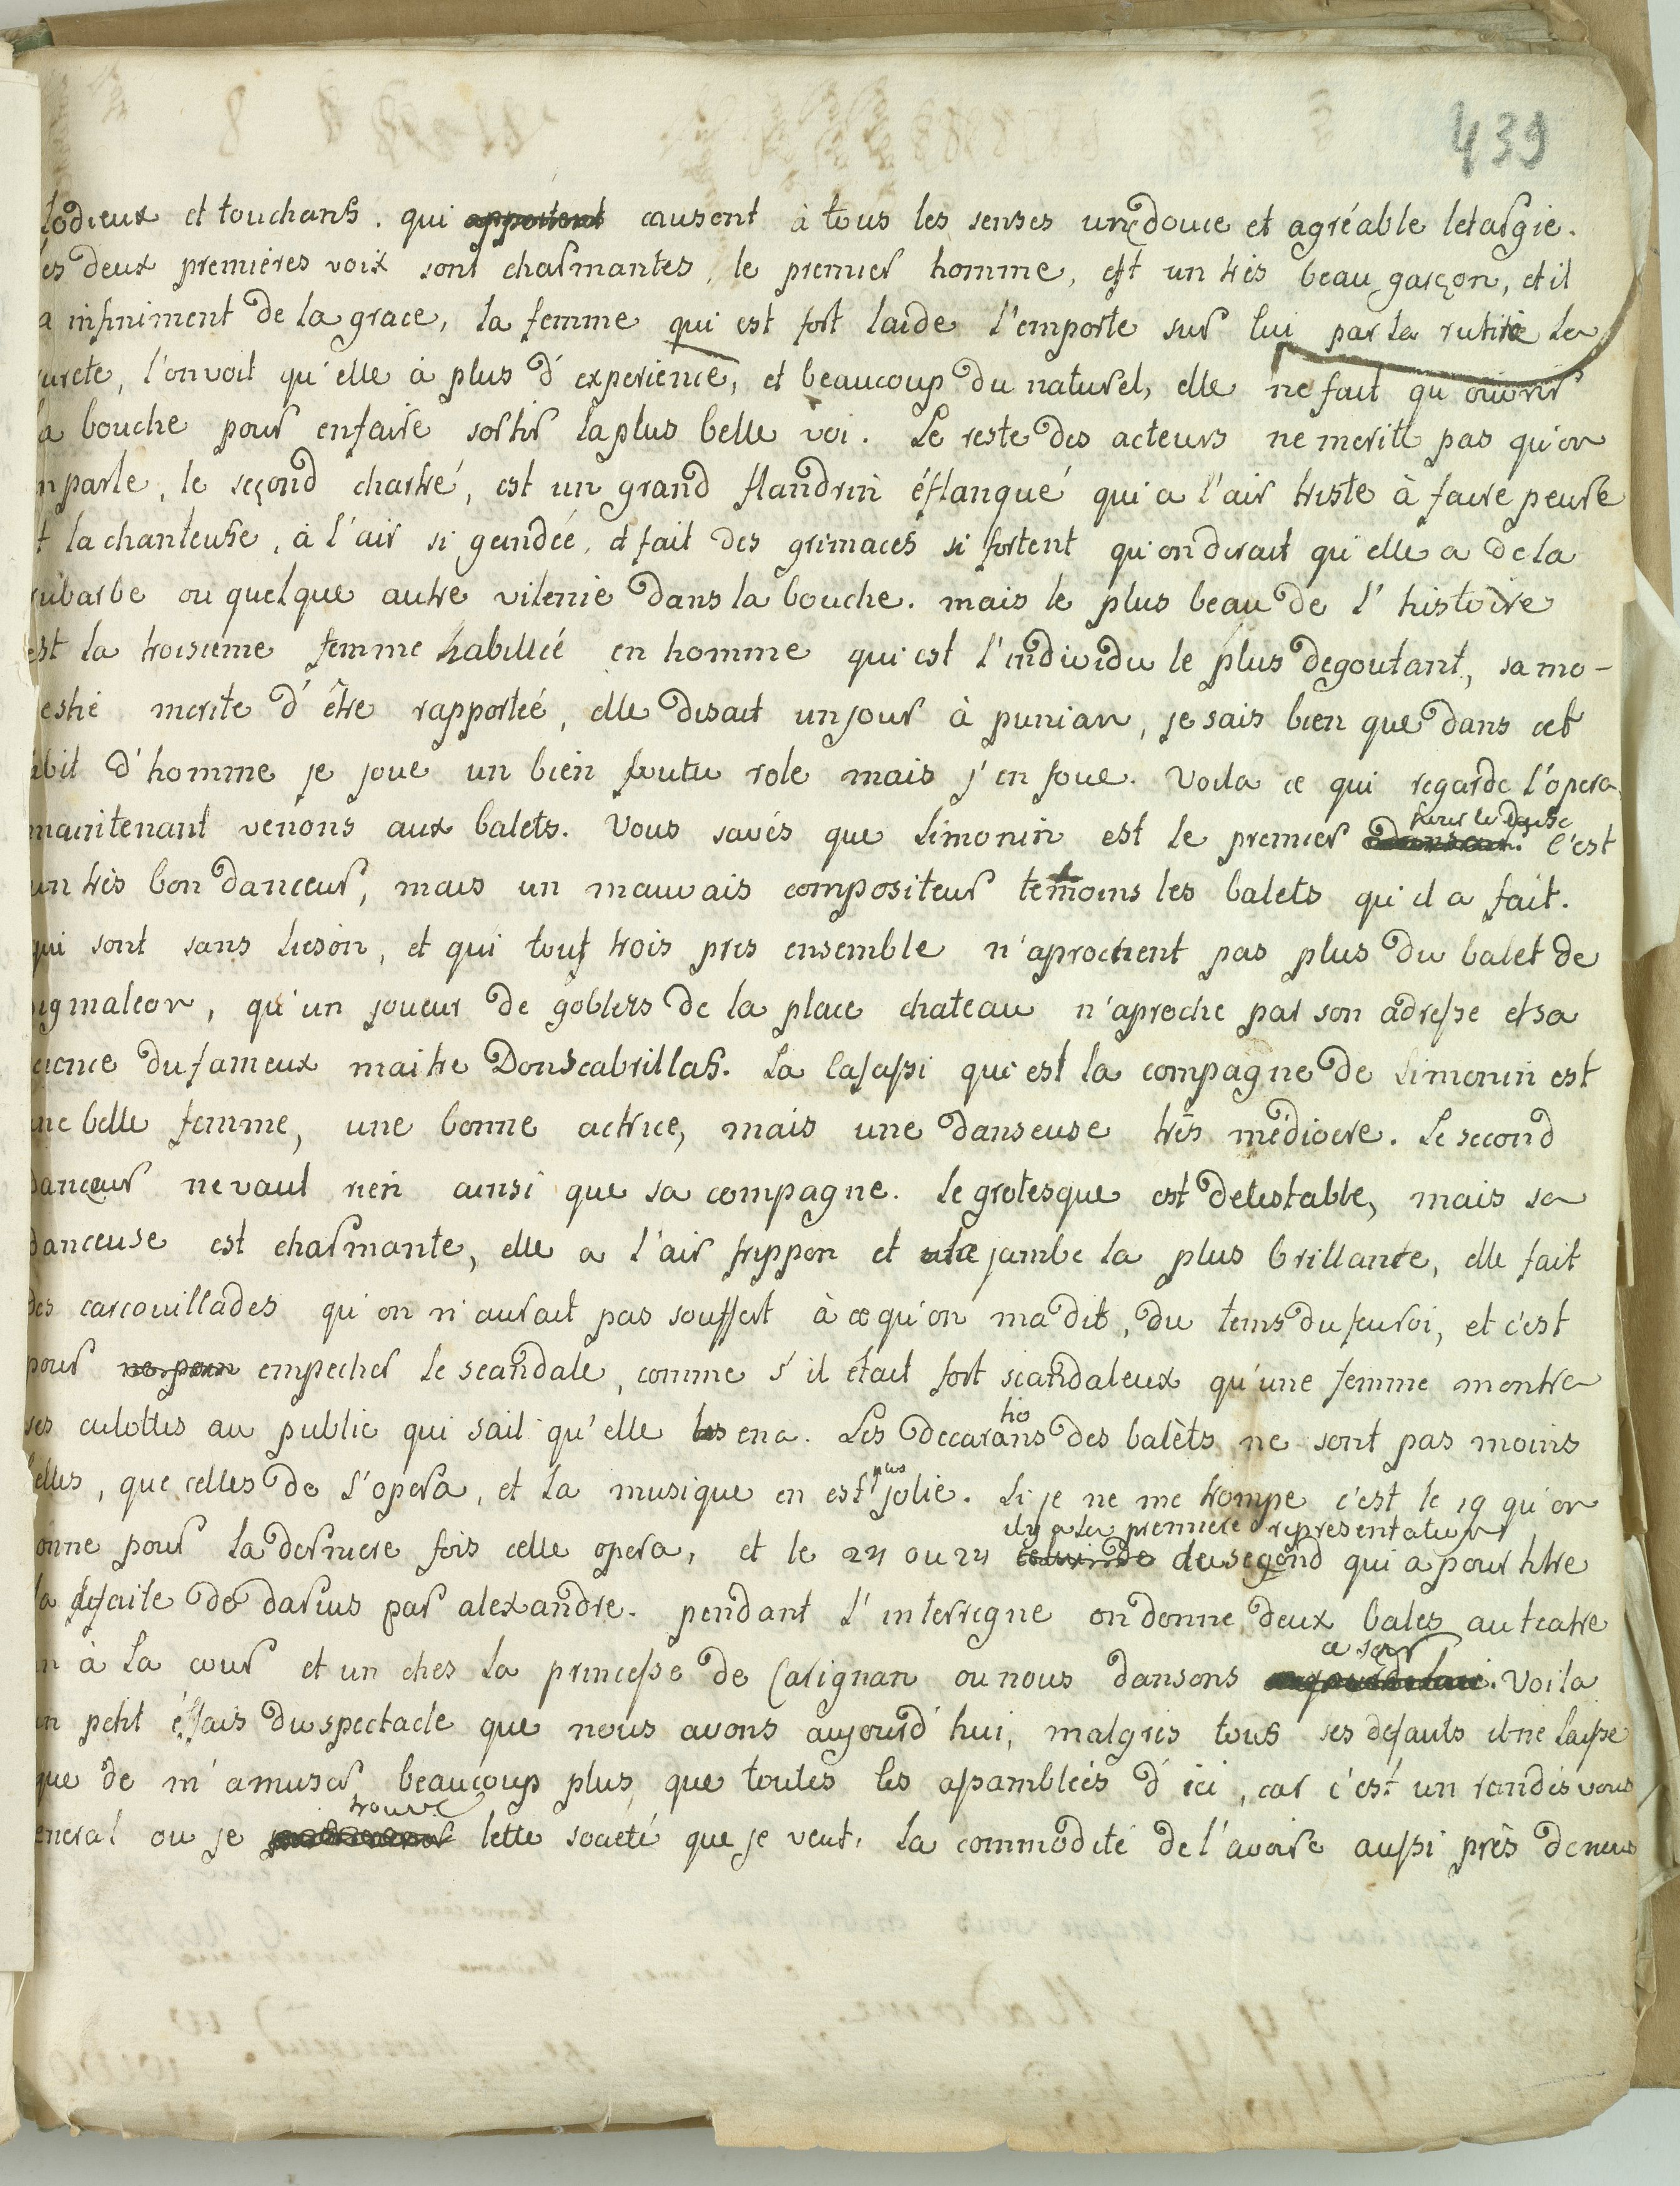 439
lodieux et touchans. qui appoitent causent à tous les senses une douce et agréable letargie.
es deux premieres voix sont charmantes, le premier homme, est un très beau garçon, et il
a infiniment de la grace, la femme qui est fort laide l'emporte sur lui par la
urete, l'on voit qu'elle à plus d'experience, et beaucoup du naturel, elle ne fait qu'ouvrir
la bouche pour enfaire sortir la plus belle voi. Le reste des acteurs ne merite pas qu'on
n parle, le seçond chartré, est un grand flandrin éflanqué qui a l'air triste à faire peure
t la chanteuse, à l'air si geindée, et fait des grimaces si fortent qu'on dirait qu'elle a de la
rubarbe ou quelque autre vilenie dans la bouche. mais le plus beau de l'histoire
est la troisieme femme habilleé en homme qui est l'individu le plus degoutant, sa mo-
estie merite d'être rapporteé, elle disait un jour à punian, je sais bien que dans cet
abit d'homme je joue un bien foutu role mais j'en joue. Voila ce qui regarde l'opera,
maintenant venons aux balets. Vous savés que Simonin est le premier c'est
un très bon danceur, mais un mauvais compositeur temoins les balets qu'il a fait.
qui sont sans lieson, et qui tous trois pris ensemble n'aprochent pas plus du balet de
pigmaleon, qu'un joueur de goblets de la place chateau n'aproche par son adresse et sa
cience du fameux maitre Donscabrillas. La Casassi qui est la compagne de Simonin est
une belle femme, une bonne actrice, mais une danseuse très médiocre. Le second
danceur ne vaut rien ainsi que sa compagne. Le grotesque est detestable, mais sa
danceuse est charmante, elle a l'air frippon et la jambe la plus brillante, elle fait
des carcouillades qu'on n'aurait pas souffert à ce qu'on ma dit, du tems du feu roi, et c'est
pour empecher le scandale, comme s'il était fort scandaleux qu'une femme montre
ses culottes au public qui sait qu'elle en a. Les decorations des balèts ne sont pas moins
elles, que celles de l'opera, et la musique en est plus jolie. Si je ne me trompe c'est le 19 qu'on
onne pour la derniere fois cette opera, et le 23 ou 24 il y a la premiere representation du segond qui a pour titre
la defaite de darius par alexandre. pendant l'interregne on donne deux bales au teatre
un à la cour et un ches la princesse de Carignan ou nous dansons ce soir. Voila
un petit éssais du spectacle que nous avons aujourd'hui, malgres tous ses defauts il ne laisse
que de m'amuser beaucoup plus que toutes les assambleés d'ici, car c'est un randés vous
eneral ou je trouve telle societé que je veut, la commodité de l'avoire aussi près de nous